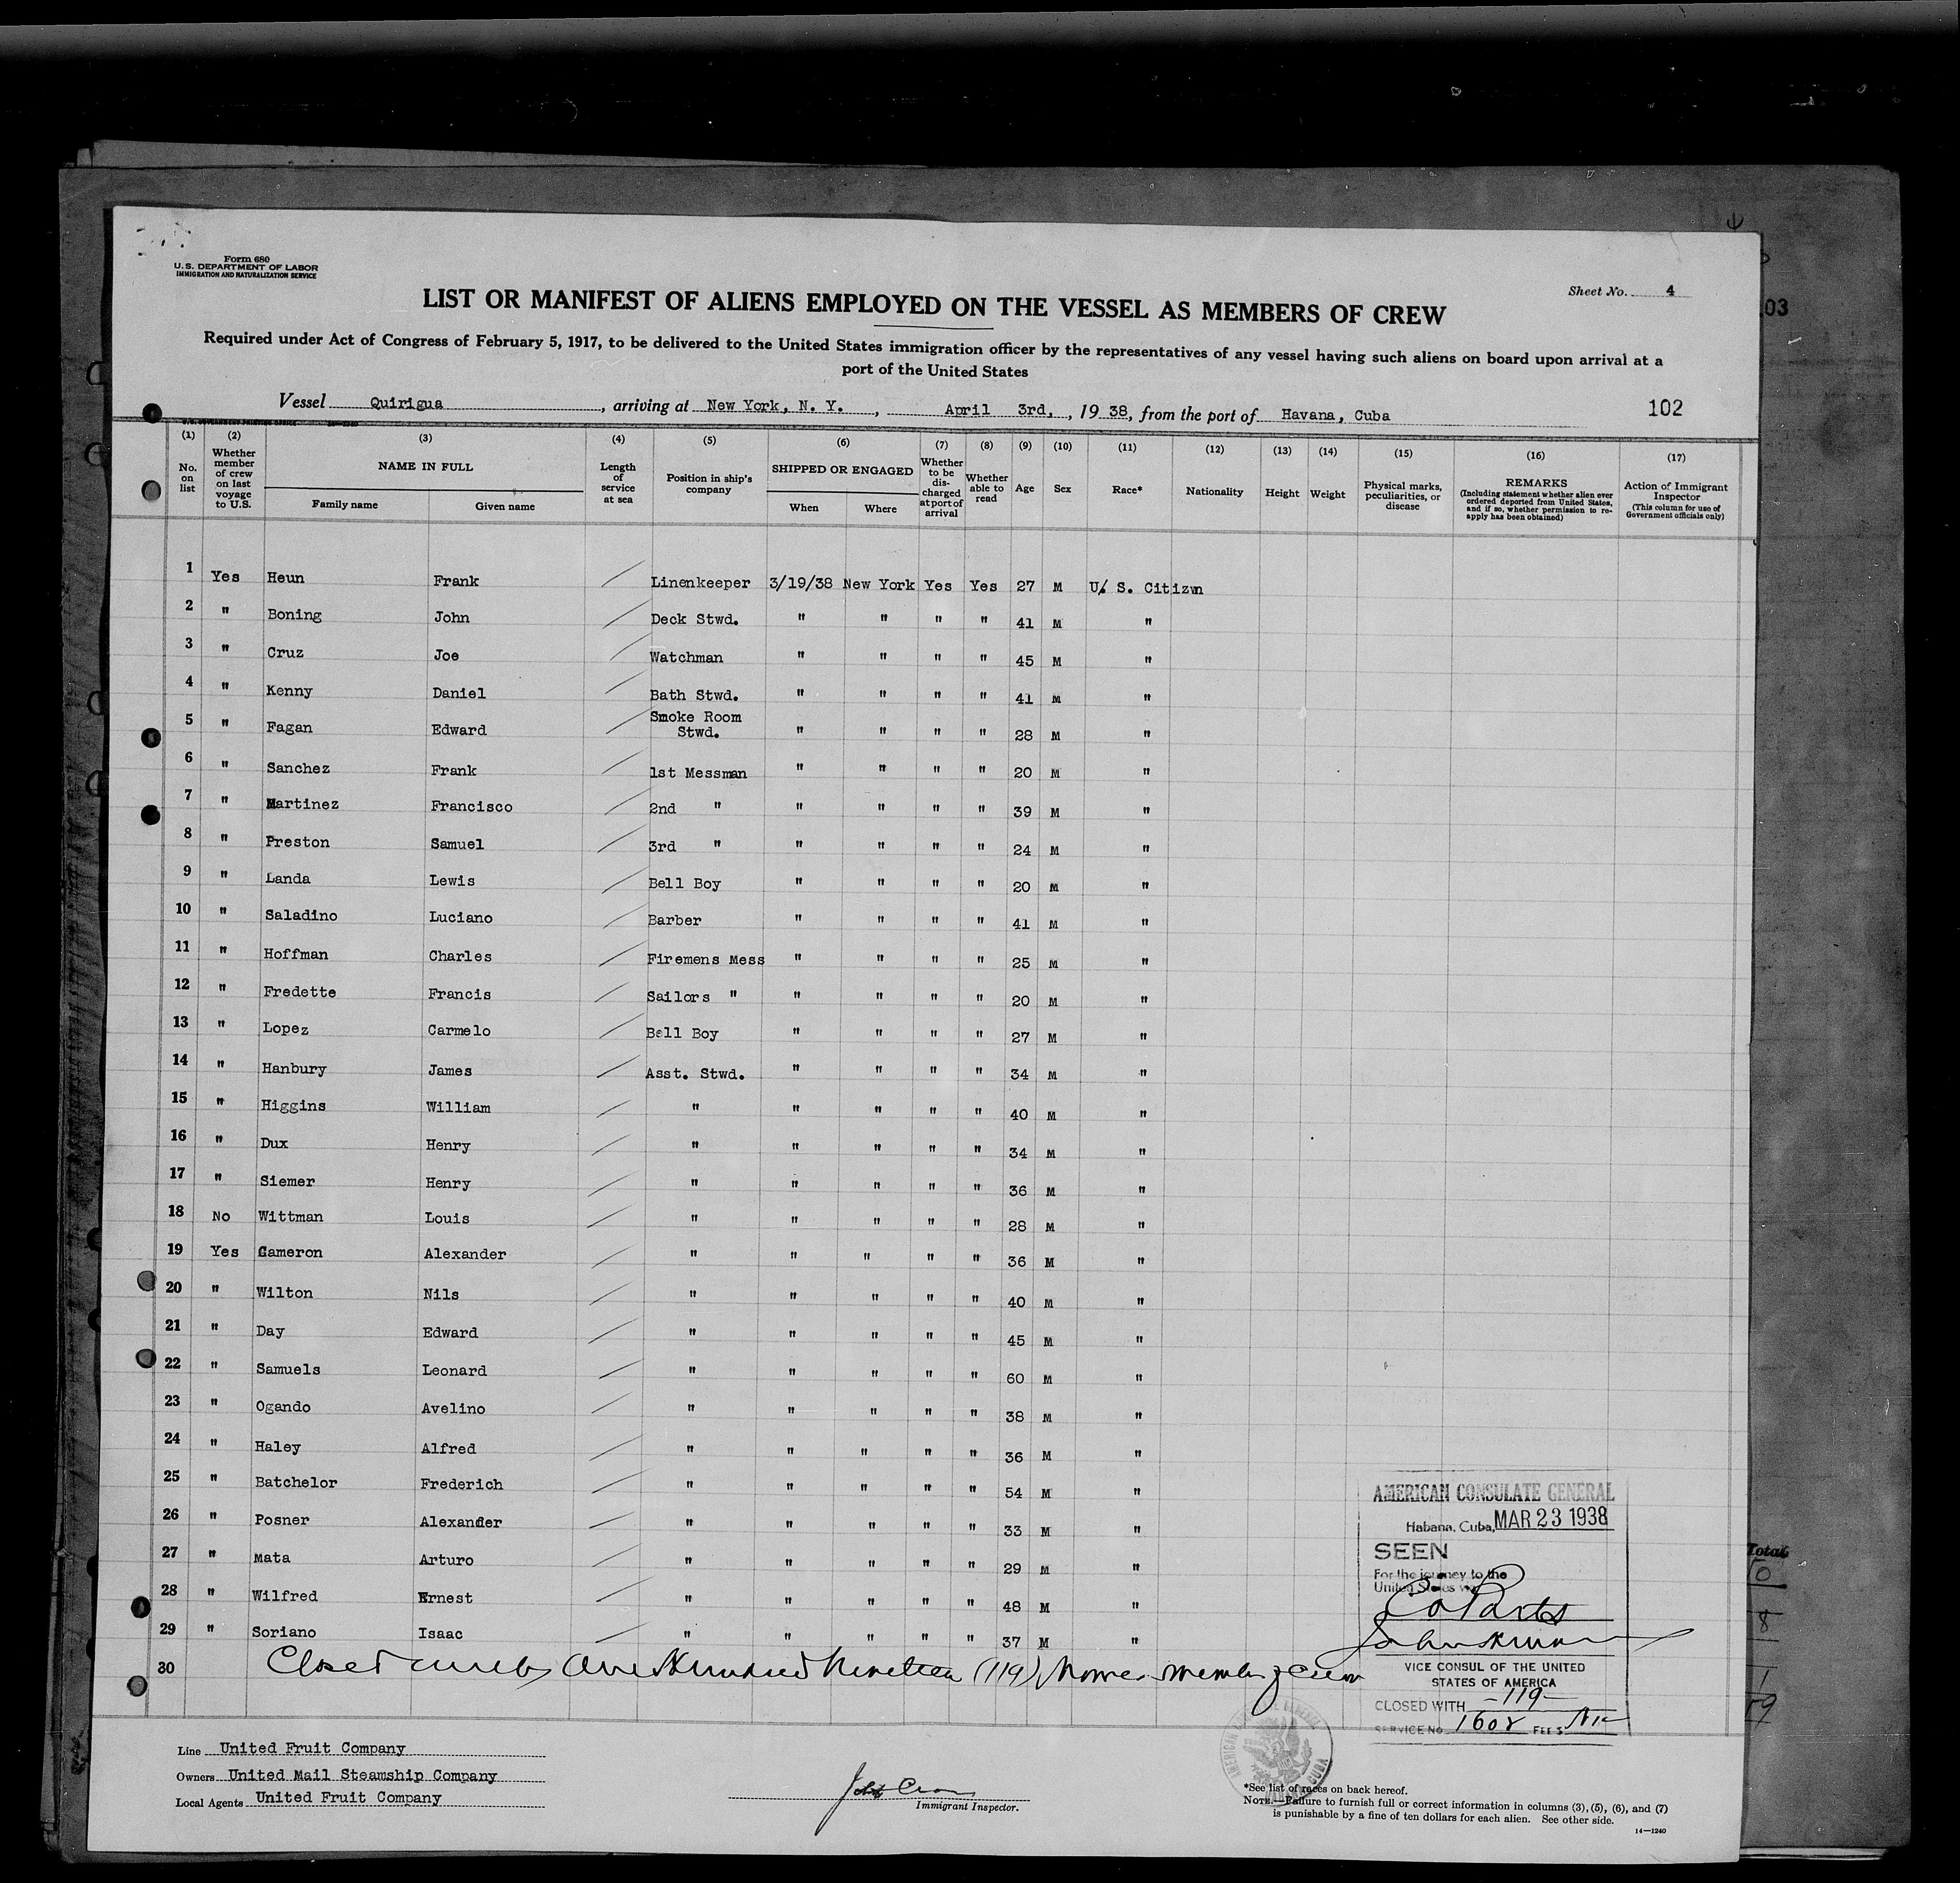 Form 680
U. S. DEPARTMENT OF LABOR
IMMIGRATION AND NATURALIZATION SERVICE
Sheet No. 4
LIST OR MANIFEST OF ALIENS EMPLOYED ON THE VESSEL AS MEMBERS OF CREW
Required under Act of Congress of February 5, 1917, to be delivered to the United States immigration officer by the representatives of any vessel having such aliens on board upon arrival at a
port of the United States
Vessel Quirigua, arriving at New York, N. Y., April 3rd, , 1938, from the port of Havana, Cuba
102
03
(1) No. on list
(2) Whether member of crew on last voyage to U.S.
(3) NAME IN FULL Family name Given name
(4) Length of service at sea
(5) Position in ship's company
(6) SHIPPED OR ENGAGED When Where
(7) Whether to be discharged at port of arrival
(8) Whether able to read
(9) Age
(10) Sex
(11) Race*
(12) Nationality
(13) Height
(14) Weight
(15) Physical marks, peculiarities, or disease
(16) REMARKS (Including statement whether alien ever ordered deported from United States, and if so, whether permission to reapply has been obtained)
(17) Action of Immigrant Inspector (This column for use of Government officials only)
1 Yes Heun Frank Linenkeeper 3/19/38 New York Yes Yes 27 M U. S. Citizwn
2 " Boning John Deck Stwd. " " " " 41 M "
3 " Cruz Joe Watchman " " " " 45 M "
4 " Kenny Daniel Bath Stwd. " " " " 41 M "
5 " Fagan Edward Smoke Room Stwd. " " " " 28 M "
6 " Sanchez Frank 1st Messman " " " " 20 M "
7 " Martinez Francisco 2nd " " " " " 39 M "
8 " Preston Samuel 3rd " " " " " 24 M "
9 " Landa Lewis Bell Boy " " " " 20 M "
10 " Saladino Luciano Barber " " " " 41 M "
11 " Hoffman Charles Firemens Mess " " " " 25 M "
12 " Fredette Francis Sailors " " " " " 20 M "
13 " Lopez Carmelo Bell Boy " " " " 27 M "
14 " Hanbury James Asst. Stwd. " " " " 34 M "
15 " Higgins William " " " " " 40 M "
16 " Dux Henry " " " " " 34 M "
17 " Siemer Henry " " " " " 36 M "
18 No Wittman Louis " " " " " 28 M "
19 Yes Cameron Alexander " " " " " 36 M "
20 " Wilton Nils " " " " " 40 M "
21 " Day Edward " " " " " 45 M "
22 " Samuels Leonard " " " " " 60 M "
23 " Ogando Avelino " " " " " 38 M "
24 " Haley Alfred " " " " " 36 M "
25 " Batchelor Frederich " " " " " 54 M "
26 " Posner Alexander " " " " " 33 M "
27 " Mata Arturo " " " " " 29 M "
28 " Wilfred Ernest " " " " " 48 M "
29 " Soriano Isaac " " " " " 37 M "
30 Closed One Hundred Nineteen (119) Names
AMERICAN CONSULATE GENERAL
Habana, Cuba, MAR 23 1938
SEEN
For the journey to the
United States
VICE CONSUL OF THE UNITED
STATES OF AMERICA
CLOSED WITH -119-
SERVICE No. 1602 FEES
Total
Line United Fruit Company
Owners United Mail Steamship Company
Local Agents United Fruit Company
Immigrant Inspector.
*See list of races on back hereof.
NOTE.—Failure to furnish full or correct information in columns (3), (5), (6), and (7)
is punishable by a fine of ten dollars for each alien. See other side.
14—1240